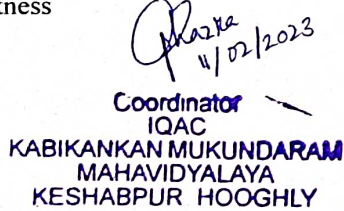 kness
11/02/2023
Coordinator
IQAC
KABIKANKAN MUKUNDARAM
MAHAVIDYALAYA
KESHABPUR HOOGHLY